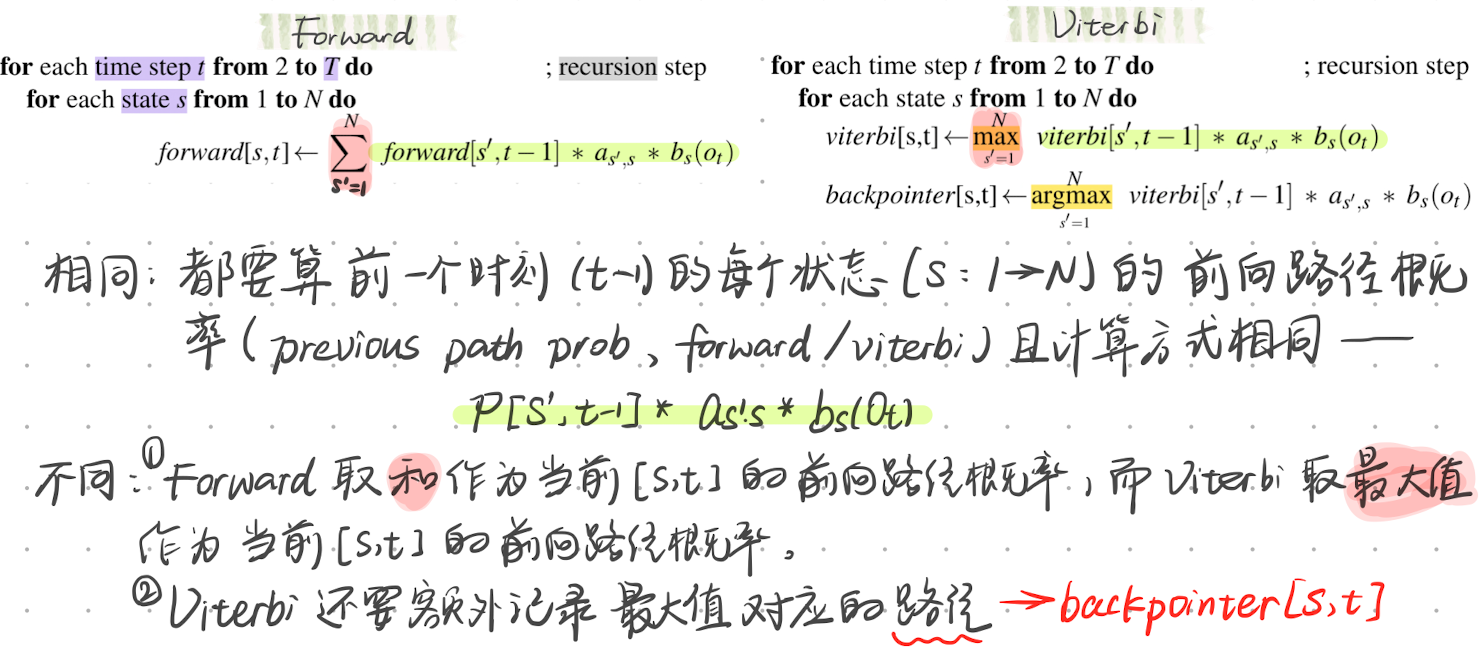 Forward
for each time step t from 2 to T do ; recursion step
for each state s from 1 to N do
forward[s,t] ← ∑_{s'=1}^{N} forward[s′,t−1] * a_{s′,s} * b_s(o_t)
Viterbi
for each time step t from 2 to T do ; recursion step
for each state s from 1 to N do
viterbi[s,t] ← max_{s′=1}^{N} viterbi[s′,t−1] * a_{s′,s} * b_s(o_t)
backpointer[s,t] ← argmax_{s′=1}^{N} viterbi[s′,t−1] * a_{s′,s} * b_s(o_t)
相同：都要算前一个时刻(t-1)的每个状态[S：1→N]的前向路径概
率(previous path prob、forward/viterbi)且计算方式相同——
P[S′,t-1] * as's * bs(Ot)
不同：①Forward 取和作为当前[S,t]的前向路径概率，而Viterbi取最大值
作为当前[S,t]的前向路径概率。
②Viterbi还要额外记录最大值对应的路径→backpointer[S,t]